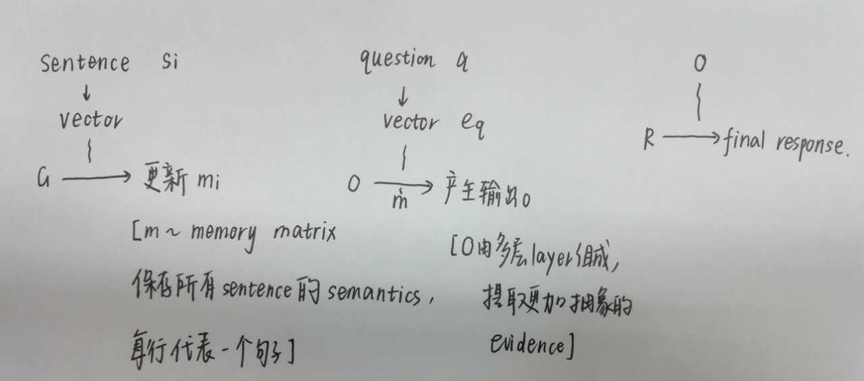 sentence si
↓
vector
G → 更新 mi
[m ~ memory matrix
保存所有sentence的semantics,
每行代表一个句子]
question q
↓
vector eq
O → 产生输出o
m
[O由多层layer组成,
提取更加抽象的
evidence]
O
R → final response.